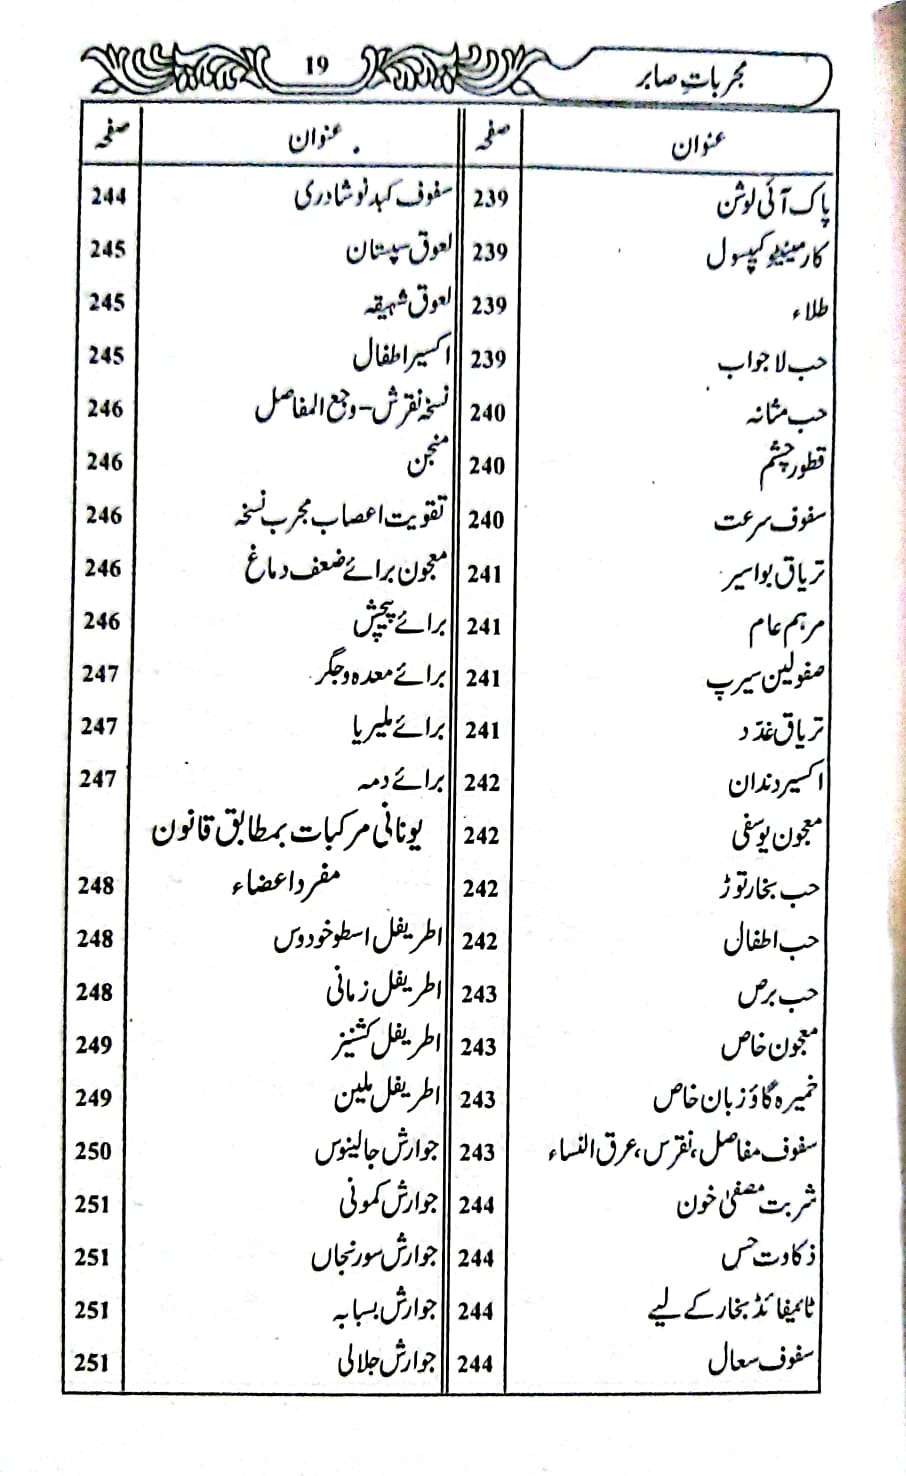 مجربات صابر
19
عنوان صفحہ
پاک آئی لوشن 239
کارمینیٹو کیپسول 239
طلاء 239
حب لاجواب 239
حب مثانہ 240
قطور چشم 240
سفوف سرعت 240
تریاق بواسیر 241
مرہم عام 241
صفولین سیرپ 241
تریاق غدد 241
اکسیر دندان 242
معجون یوسفی 242
حب بخار توڑ 242
حب اطفال 242
حب برص 243
معجون خاص 243
خمیرہ گاؤزبان خاص 243
سفوف مفاصل، نقرس، عرق النساء 243
شربت مصفیٰ خون 244
ذکاوت حس 244
ٹائیفائڈ بخار کے لیے 244
سفوف سعال 244
عنوان صفحہ
سفوف کبد نوشادری 244
لعوق سپستان 245
لعوق شہیقہ 245
اکسیر اطفال 245
نسخہ نقرش - وجع المفاصل 246
منجن 246
تقویت اعصاب مجرب نسخہ 246
معجون برائے ضعف دماغ 246
برائے پیچش 246
برائے معدہ و جگر 247
برائے ملیریا 247
برائے دمہ 247
یونانی مرکبات بمطابق قانون
مفرد اعضاء 248
اطریفل اسطوخودوس 248
اطریفل زمانی 248
اطریفل کشنیز 249
اطریفل ملین 249
جوارش جالینوس 250
جوارش کمونی 251
جوارش سورنجاں 251
جوارش بسبابہ 251
جوارش جلالی 251